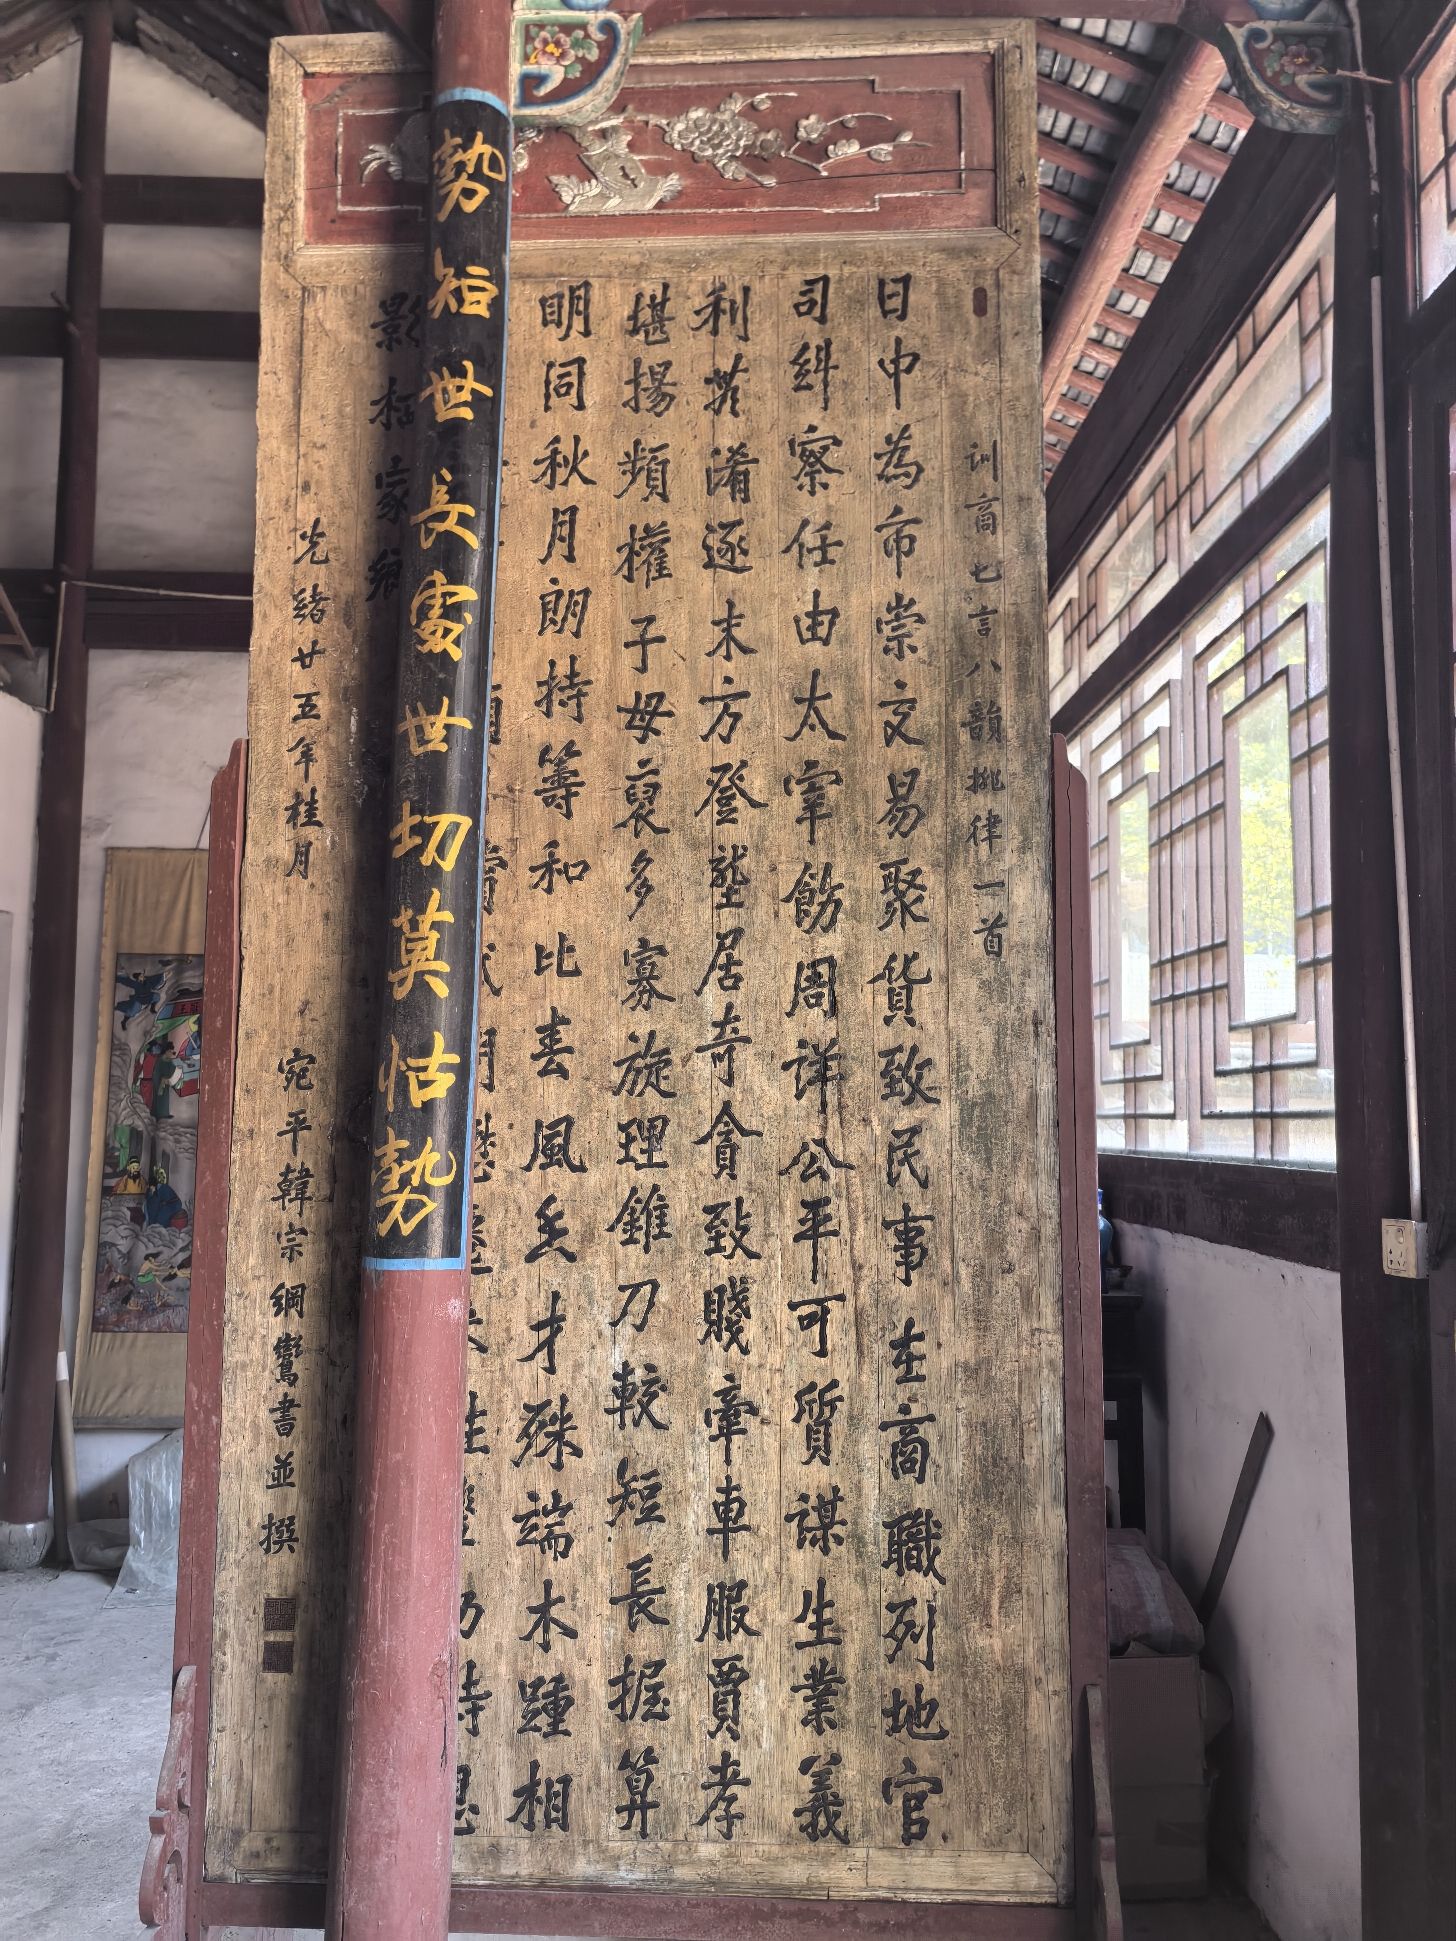 訓商七言八韻排律一首
日中為市崇交易聚貨致民事在商職列地官
司糾察任由太宰飭周詳公平可質謀生業義
利营淆逐末方登壟居奇貪致賤牽車服賈孝
堪揚頻權子母裒多寡旋理錐刀較短長握算
明同秋月朗持筹和比春風長才殊端木踵相
影
家
光緒廿五年桂月
宛平韓宗綱鸞書並撰
勢短世長處世切莫怙勢